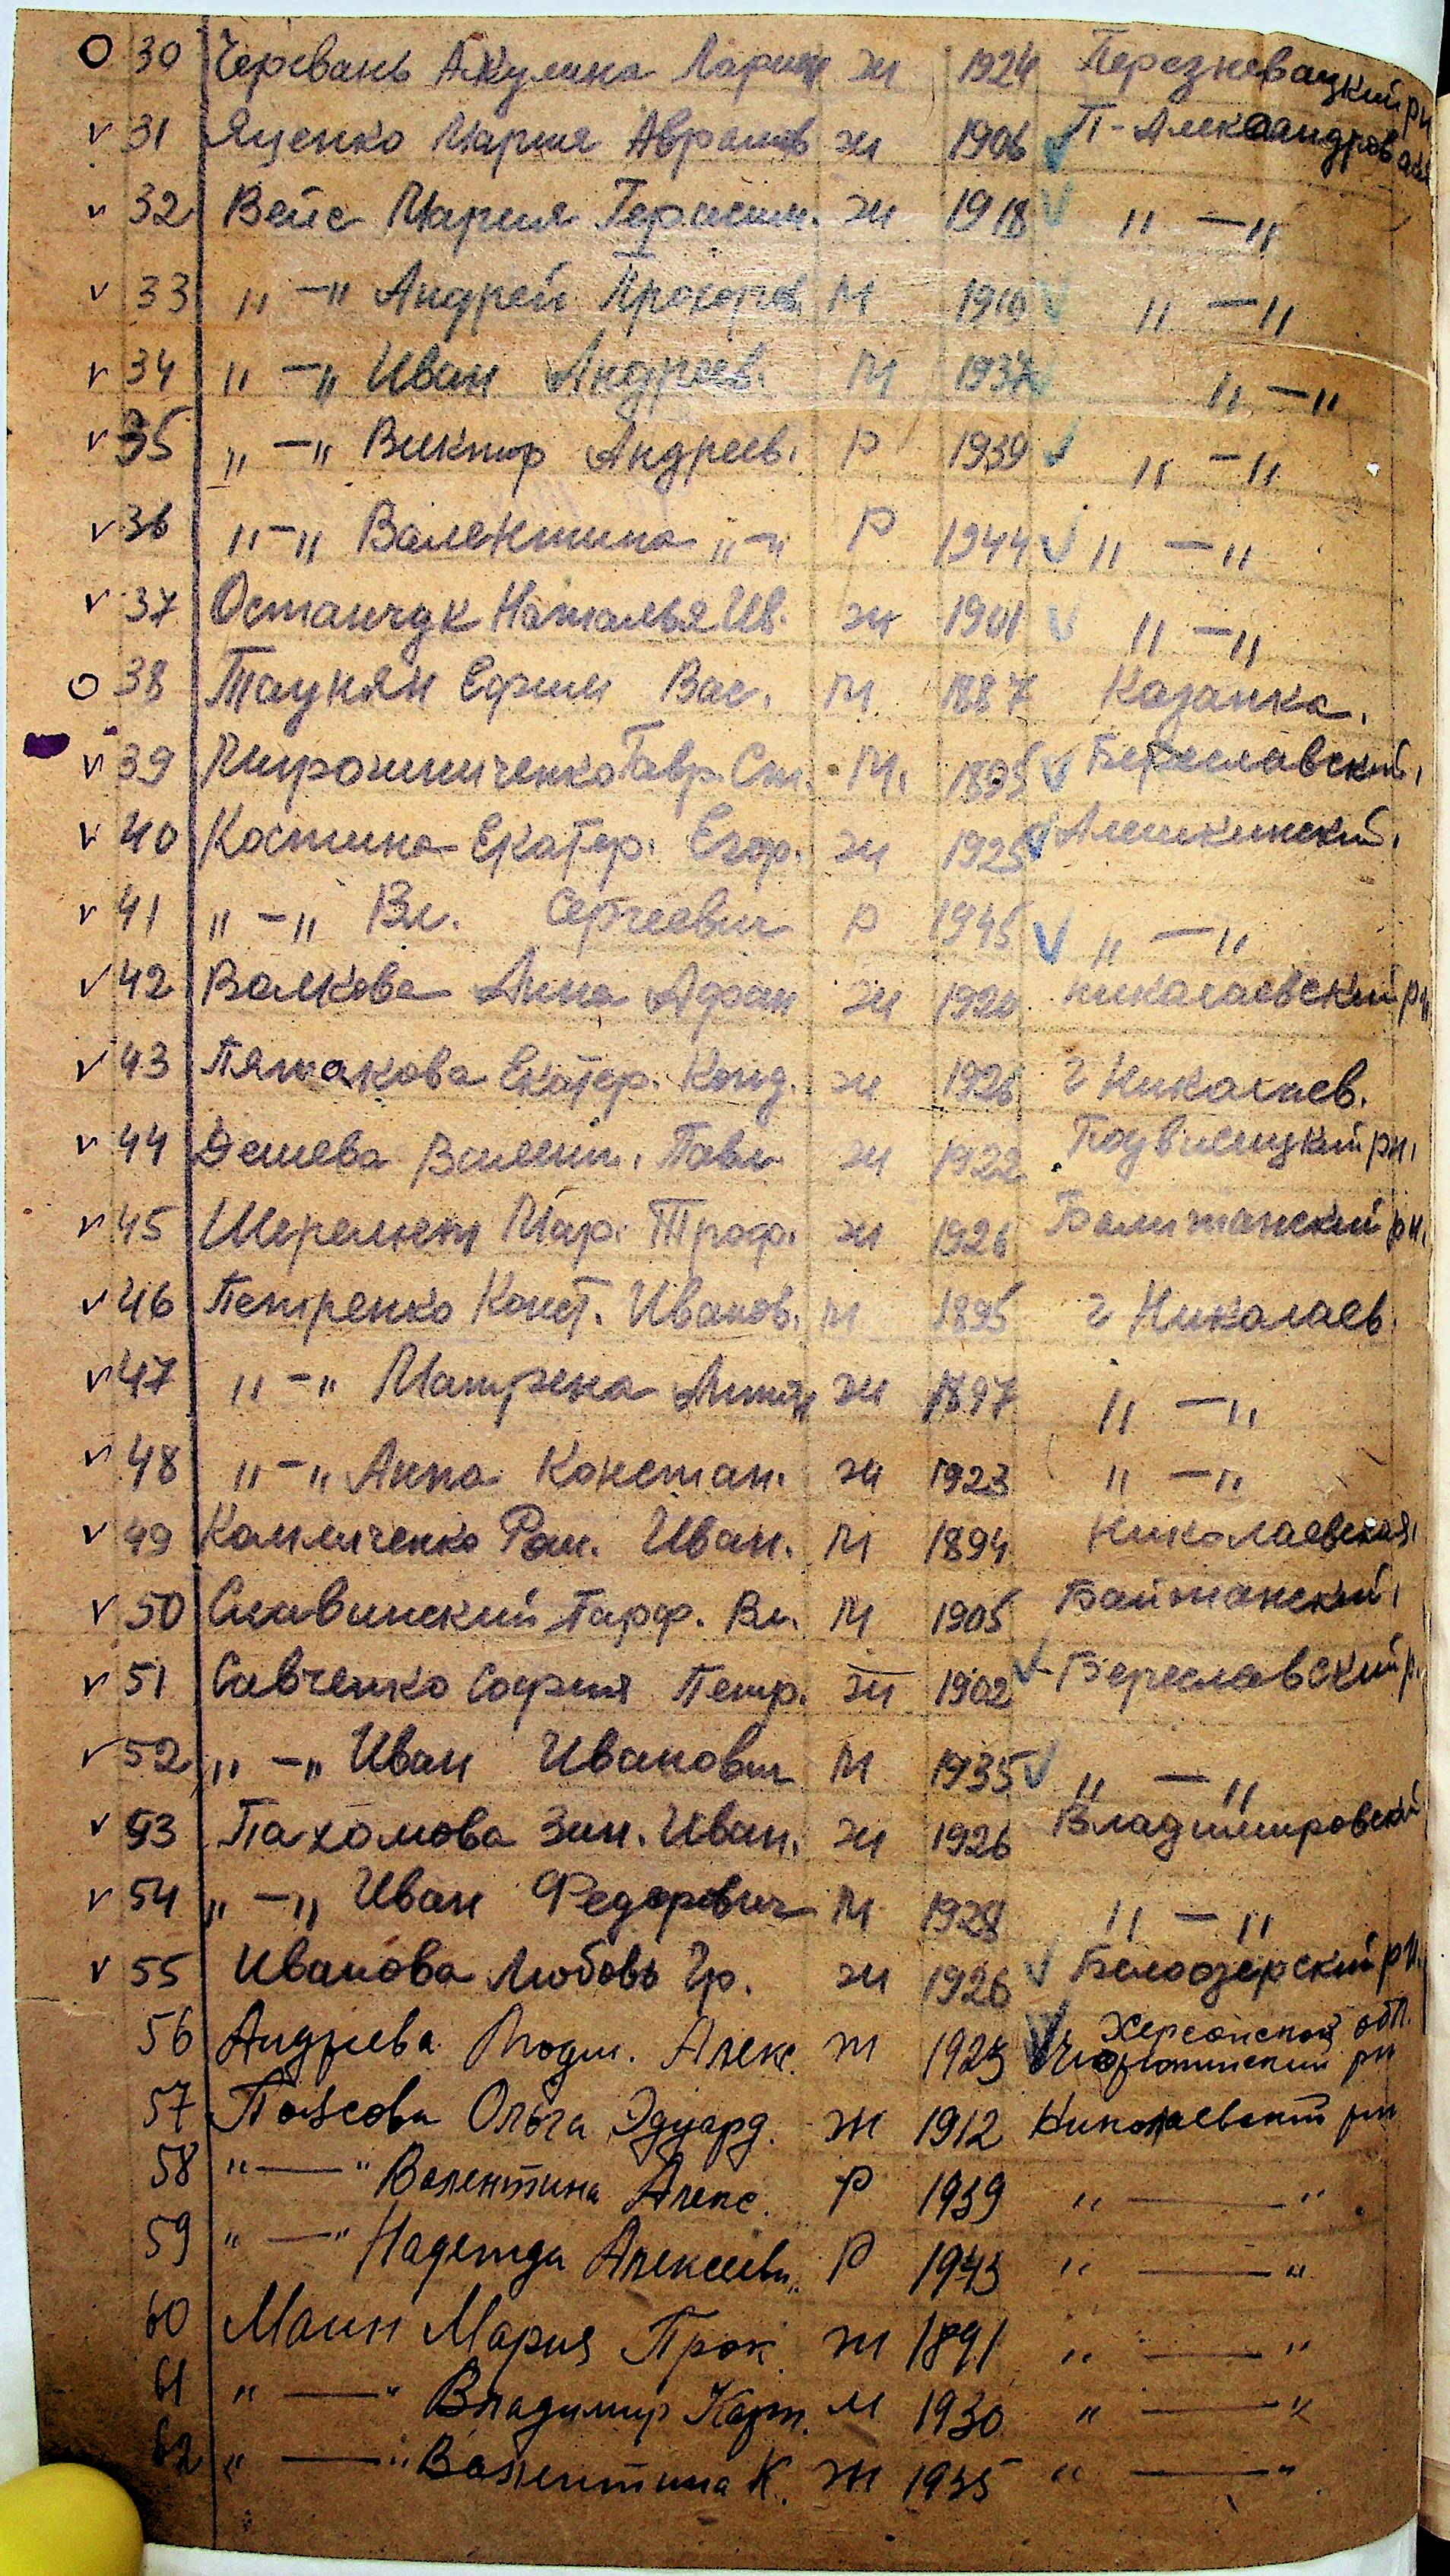 30 Черевань Акулина Ларион ж 1924 Перезневацкий рн
31 Яценко Мария Абрамов ж 1906 П-Александровская
32 Вейс Мария Герасим. ж 1918 " — "
33 " — " Андрей Прокофьев М 1910 " — "
34 " — " Иван Андреев. М 1937 " — "
35 " — " Виктор Андреев. Р 1939 " — "
36 " — " Валентина " — " Р 1944 " — "
37 Останчук Наталья Ив. ж 1901 " — "
38 Таукян Ефим Вас. М 1887 Казанка.
39 Мирошниченко Гавр. Ст. М. 1895 Береславский,
40 Костина Екатер. Егор. ж 1925 Алешкинский.
41 " — " Вл. Сергеевич Р 1945 " — "
42 Волкова Анна Афан ж 1920 Николаевский рн
43 Пятакова Екатер. Конд. ж 1926 г Николаев.
44 Дешева Валент. Павл. ж 1922 Подвысоцкий рн.
45 Шеремет Мар. Троф. ж 1926 Балштанский рн.
46 Петренко Конст. Иванов. М 1895 г Николаев.
47 " — " Матрена Антон ж 1897 " — "
48 " — " Анна Констан. ж 1923 " — "
49 Ром. Иван. М 1894 Николаевская,
50 Славинский Парф. Вл. М 1905 Баштанский,
51 Савченко София Петр. ж 1902 Береславский р.
52 " — " Иван Иванович М 1935 " — "
53 Пахомова Зин. Иван. ж 1926 Владимировский
54 " — " Иван Федорович М 1928 " — "
55 Иванова Любовь Гр. ж 1926 Белозерский рн.
56 Андреева Людм. Алекс. ж 1925 Херсонская обл.
рн
57 Ольга Эдуард. ж 1912 Николаевский рн
58 " — " Валентина Алекс. Р 1939 " — "
59 " — " Надежда Алексеевн. Р 1943 " — "
60 Манн Мария Прок. ж 1891 " — "
61 " — " Владимир Карл. М 1930 " — "
62 " — " Валентина К. ж 1935 " — "